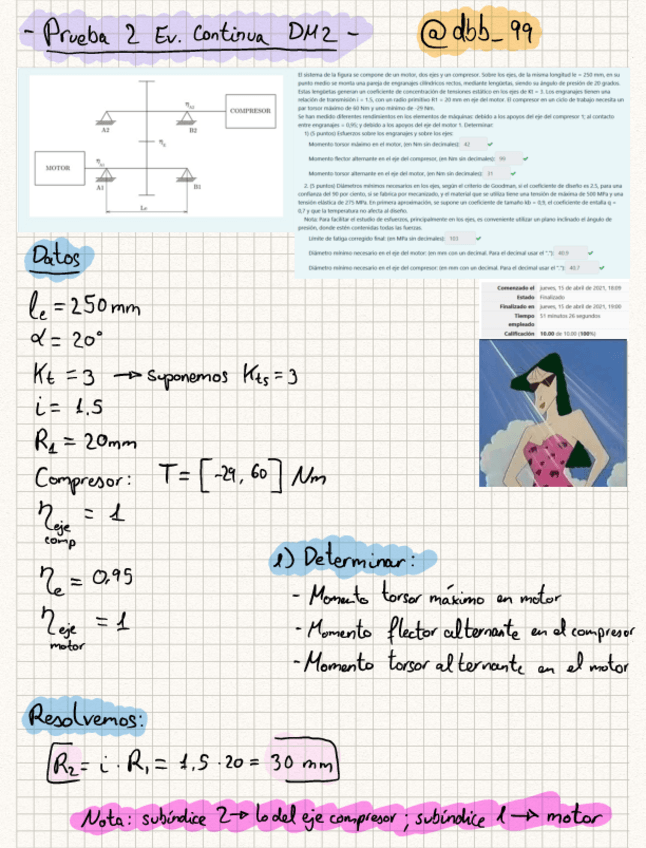 - Prueba 2 Ev. Continua DM2 -
@dbb_99
COMPRESOR
A2
B2
MOTOR
A1
B1
Le
El sistema de la figura se compone de un motor, dos ejes y un compresor. Sobre los ejes, de la misma longitud le = 250 mm, en su
punto medio se monta una pareja de engranajes cilíndricos rectos, mediante lengüetas, siendo su ángulo de presión de 20 grados.
Estas lengüetas generan un coeficiente de concentración de tensiones estático en los ejes de Kt = 3. Los engranajes tienen una
relación de transmisión i = 1.5, con un radio primitivo R1 = 20 mm en eje del motor. El compresor en un ciclo de trabajo necesita un
par torsor máximo de 60 Nm y uno mínimo de -29 Nm.
Se han medido diferentes rendimientos en los elementos de máquinas: debido a los apoyos del eje del compresor 1; al contacto
entre engranajes = 0,95; y debido a los apoyos del eje del motor 1. Determinar:
1) (5 puntos) Esfuerzos sobre los engranajes y sobre los ejes
Momento torsor máximo en el motor, (en Nm sin decimales): 42
Momento flector alternante en el eje del compresor, (en Nm sin decimales): 99
Momento torsor alternante en el eje del motor, (en Nm sin decimales): 31
2. (5 puntos) Diámetros mínimos necesarios en los ejes, según el criterio de Goodman, si el coeficiente de diseño es 2.5, para una
confianza del 90 por ciento, si se fabrica por mecanizado, y el material que se utiliza tiene una tensión de máxima de 500 MPa y una
tensión elástica de 275 MPa. En primera aproximación, se supone un coeficiente de tamaño kb = 0,9, el coeficiente de entalla q =
0,7 y que la temperatura no afecta al diseño.
Nota: Para facilitar el estudio de esfuerzo, principalmente en los ejes, es conveniente utilizar un plano inclinado el ángulo de
presión, donde estén contenidas todas las fuerzas.
Límite de fatiga corregido final: (en MPa sin decimales): 163
Diámetro mínimo necesario en el eje del motor: (en mm con un decimal. Para el decimal usar el "."): 40.9
Diámetro mínimo necesario en el eje del compresor: (en mm con un decimal. Para el decimal usar el "."): 40.7
Comenzado el jueves, 15 de abril de 2021, 18:09
Estado Finalizado
Finalizado en jueves, 15 de abril de 2021, 19:00
Tiempo 51 minutos 26 segundos
empleado
Calificación 10.00 de 10.00 (100%)
Datos
le = 250 mm
α = 20°
Kt = 3 → Suponemos Kts = 3
i = 1.5
R1 = 20mm
Compresor: T = [-29, 60] Nm
η eje comp = 1
ηe = 0,95
η eje motor = 1
1) Determinar:
- Momento torsor máximo en motor
- Momento flector alternante en el compresor
- Momento torsor alternante en el motor
Resolvemos:
R2 = i · R1 = 1,5 · 20 = 30 mm
Nota: subíndice 2 → lo del eje compresor ; subíndice 1 → motor